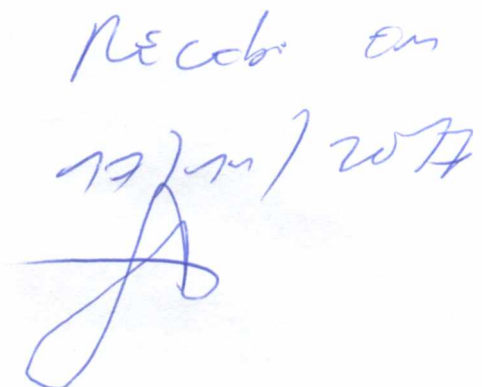 Recebi em
17/11/2017